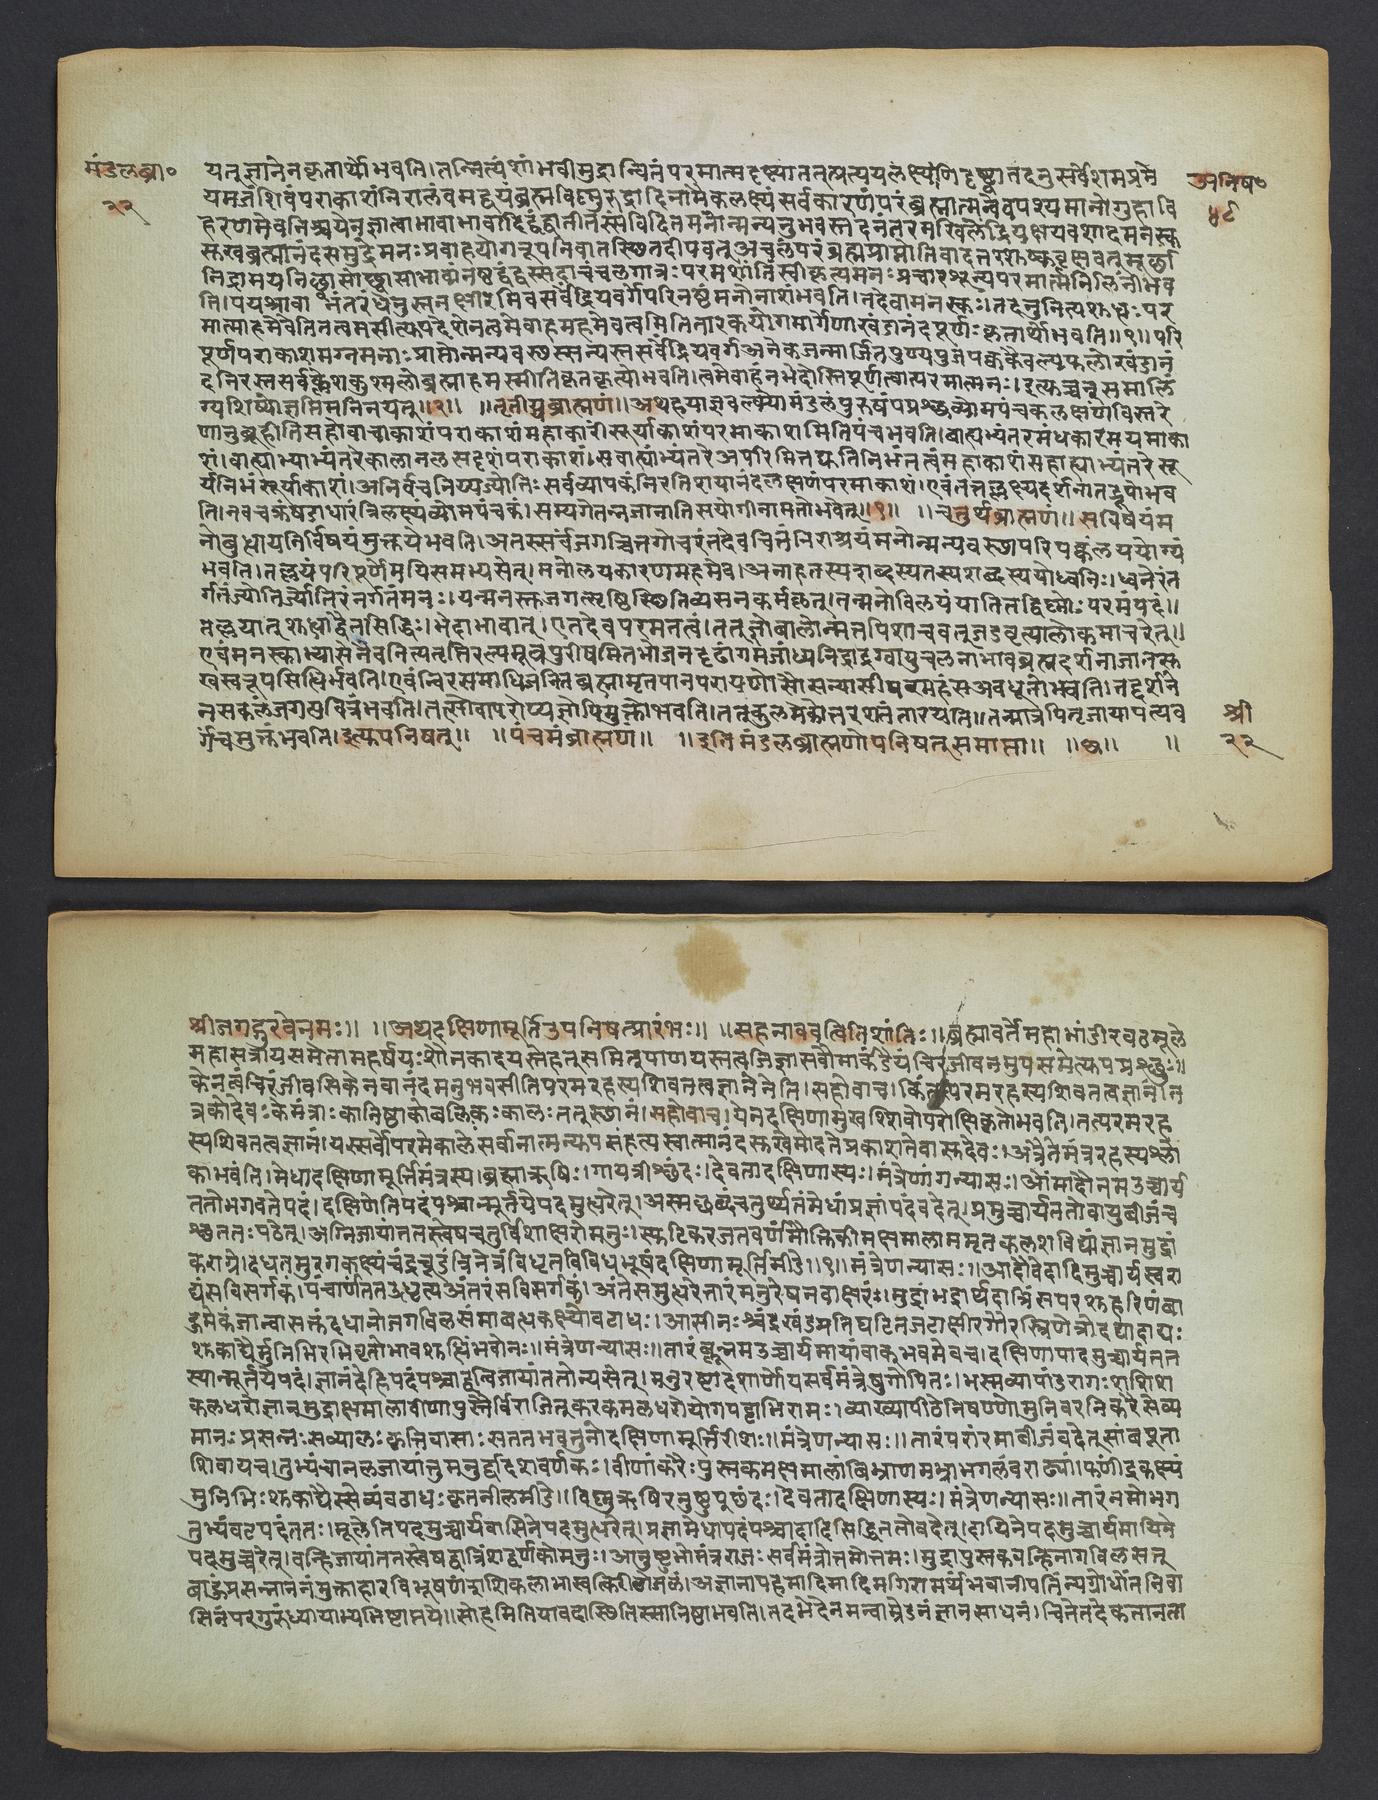 मंडलब्रा०
२२
उपनिष०
४८
यत् ज्ञानेन कृतार्थो भवति। तन्नित्यं शांभवीमुद्रान्वितं परमात्मदृष्ट्या तत्प्रत्ययलक्ष्याणि दृष्ट्वा तदनु सर्वेशमप्रमे
यमजं शिवं परमाकाशं निरालंबमद्वयं ब्रह्मविष्णुरुद्रादिनामेकलक्ष्यं सर्वकारणं परं ब्रह्मात्मन्येव पश्यमानो गुहावि
हरणमेव निश्चयेन ज्ञात्वा भावाभावादिद्वंद्वातीतस्संविदितमनोन्मन्यनुभवस्तदनंतरमखिलेंद्रियक्षयवशादमनस्क
सुखब्रह्मानंदसमुद्रे मनःप्रवाहयोगरूपनिवातस्थितदीपवत् अचलं परं ब्रह्म प्राप्नोति
तिपयश्रावानंतरं धेनुस्तनक्षीरमिव सर्वेंद्रियवर्गे परिनष्टे मनोनाशं भवति। तदेवामनस्कः। तदनु नित्यशुद्धः पर
मात्माहमेवेति तत्वमसीत्युपदेशेन त्वमेवाहमहमेव त्वमिति तारकयोगमार्गेणाखंडानंदपूर्णः कृतार्थो भवति॥१॥ परि
पूर्णपराकाशमग्नमनाः प्राप्तोन्मन्यवस्थस्सन्यस्तसर्वेंद्रियवर्ग अनेकजन्मार्जितपुण्यपुंजपक्वकैवल्यफलोखंडानं
दनिरस्तसर्वक्लेशकश्मलो ब्रह्माहमस्मीति कृतकृत्यो भवति। त्वमेवाहं न भेदोस्ति पूर्णत्वात्परमात्मनः। इत्युच्चरन्समालिं
ग्य शिष्यं ज्ञप्तिमनिनयत्॥२॥ ॥तृतीयब्राह्मणं॥ अथ ह याज्ञवल्क्यो मंडलपुरुषं पप्रच्छ व्योमपंचकलक्षणं विस्तरे
णानुब्रूहीति स होवाचाकाशं पराकाशं महाकाशं सूर्याकाशं परमाकाशमिति पंच भवंति। बाह्याभ्यंतरमंधकारमयमाका
शं। बाह्याभ्याभ्यंतरे कालानलसदृशं पराकाशं। सबाह्याभ्यंतरे अपरिमितद्युतिनिभं तत्वं महाकाशं सबाह्याभ्यंतरे सू
र्यनिभं सूर्याकाशं। अनिर्वचनिय्यज्योतिः सर्वव्यापकं निरतिशयानंदलक्षणं परमाकाशं। एवं तत्तल्लक्ष्यदर्शनात्तद्रूपो भव
ति। नवचक्रं षडाधारं त्रिलक्ष्यं व्योमपंचकं। सम्यगेतन्न जानाति स योगी नामतो भवेत्॥१॥ ॥चतुर्थब्राह्मणं॥ सविषयं म
नो बंधाय निर्विषयं मुक्तये भवति। अतस्सर्वं जगच्चित्तगोचरं तदेव चित्तं निराश्रयं मनोन्मन्यवस्थापरिपक्वं लययोग्यं
भवति। तल्लयं परिपूर्णे मयि समभ्यसेत्। मनोलयकारणमहमेव। अनाहतस्य शब्दस्य तस्य शब्दस्य यो ध्वनिः। ध्वनेरंत
र्गतं ज्योतिर्ज्योतिरंतर्गतं मनः। यन्मनस्त्रजगत्सृष्टिस्थितिव्यसनकर्मकृत्। तन्मनो विलयं याति तद्विष्णोः परमं पदं॥
तल्लयात् शुद्धाद्वैतसिद्धिः। भेदाभावात्। एतदेव परमतत्वं। तत् ज्ञो बालोन्मत्तपिशाचवत् जडवृत्त्या लोकमाचरेत्॥
एवममनस्काभ्यासेनैव नित्यतृप्तिरल्पमूत्रपुरीषमितभोजनदृढांगमजाड्यनिद्रादृग्वायुचलनाभावब्रह्मदर्शनाज्जातसु
खस्वरूपसिद्धिर्भवति। एवं चिरसमाधिजनितब्रह्मामृतपानपरायणोसौ सन्यासी परमहंस अवधूतो भवति। तद्दर्शने
न सकलं जगत्पवित्रं भवति। तत्सेवापरोप्यज्ञोपि मुक्तो भवति। तत्कुलमेकोत्तरशतं तारयति। तन्मातृपितृजायापत्यव
र्गं च मुक्तं भवति। इत्युपनिषत्॥ ॥पंचमं ब्राह्मणं॥ ॥इति मंडलब्राह्मणोपनिषत् समाप्ता॥ ॥छ॥ ॥
श्री
२२
श्रीजगद्गुरवेनमः॥ ॥अथ दक्षिणामूर्तिउपनिषत्प्रारंभः॥ ॥सहनाववत्विति शांतिः॥ ब्रह्मावर्ते महाभांडीरवटमूले
महासत्राय समेता महर्षयः शौनकादयस्ते ह समित्पाणयस्तत्वजिज्ञासवो मार्कंडेयं चिरंजीवनमुपसमेत्य पप्रच्छुः॥
केन त्वं चिरंजीवसि केन वानंदमनुभवसीति परमरहस्यशिवतत्वज्ञानेनेति। सहोवाच। किं तत्परमरहस्यशिवतत्वज्ञानं। त
त्र को देवः के मंत्राः का निष्ठा को बलिः कः कालः तत् स्थानं। सहोवाच। येन दक्षिणामुखः शिवोपरोक्षीकृतो भवति। तत्परमरह
स्यशिवतत्वज्ञानं। यस्सर्वोपरमेकाले सर्वानात्मन्युपसंहृत्य स्वात्मानंदसुखे मोदते प्रकाशते वा स देवः। अत्रैते मंत्ररहस्यश्लो
का भवंति। मेधादक्षिणामूर्तिमंत्रस्य। ब्रह्माऋषिः। गायत्रीश्छंदः। देवता दक्षिणास्यः। मंत्रेणांगन्यासः। ओमादौ नमउच्चार्य
ततो भगवते पदं। दक्षिणेति पदं पश्चान्मूर्तये पदमुद्धरेत्। अस्मच्छब्दं चतुर्थ्यंतं मेधां प्रज्ञां पदं वदेत्। प्रमुच्चार्य ततो वायुबीजं च
छं ततः पठेत्। अग्निजायां ततस्त्वेष चतुर्विंशाक्षरो मनुः। स्फटिकरजतवर्णं मौक्तिकीमक्षमालाममृतकलशविद्यां ज्ञानमुद्रां
कराग्रे। दधतमुरगकक्ष्यं चंद्रचूडं त्रिनेत्रं विधृतविविधभूषं दक्षिणामूर्तिमीडे॥१॥ मंत्रेण न्यासः॥ आदौ वेदादिमुच्चार्य स्वरा
द्यं सविसर्गकं। पंचार्णं तत उद्धृत्य अंतरं सविसर्गकं। अंते समुद्धरेत्तारं मनुरेष नवाक्षरः। मुद्रां भद्रार्थदात्रीं सपरशुहरिणं बा
हुमेकं जान्वासक्तं दधानो भुजगबिलसमाबद्धकक्ष्यो वटाधः। आसीनश्चंद्रखंडप्रतिघटितजटाक्षीरगौरस्त्रिणेत्रो दद्यादाद्यः
शुकाद्यैर्मुनिभिरभिवृतो भावशुद्धिं भवो नः॥ मंत्रेण न्यासः॥ तारं ब्लूं नमउच्चार्य मायां वाग्भवमेव च। दक्षिणापदमुच्चार्य तत
स्यान्मूर्तये पदं। ज्ञानं देहि पदं पश्चाद्वह्निजायां ततो न्यसेत्। मनुरष्टादशार्णोयं सर्वमंत्रेषु गोपितः। भस्मव्यापांडुरांगः शशिश
कलधरो ज्ञानमुद्राक्षमालावीणापुस्तैर्विराजत्करकमलधरो योगपट्टाभिरामः। व्याख्यापीठे निषण्णो मुनिवरनिकरैः सेव्य
मानः प्रसन्नः सव्यालः कृत्तिवासाः सततमवतु नो दक्षिणामूर्तिरीशः॥ मंत्रेण न्यासः॥ तारं परां रमाबीजं वदेत् सांब पुता
शिवाय च। तुभ्यं चानलजायां तु मनुर्द्वादशवर्णकः। वीणां करैः पुस्तकमक्षमालां बिभ्राणमभ्राभगलं वराढ्यं। फणींद्रकक्ष्यं
मुनिभिः शुकाद्यैस्सेव्यं वटाधः कृतनीलमीडे॥ विष्णुऋषिरनुष्टुप्छंदः। देवता दक्षिणास्यः। मंत्रेण न्यासः॥ तारं नमो भग
तुभ्यं वटपदं ततः। मूलेति पदमुच्चार्य वासिने पदमुद्धरेत्। प्रज्ञामेधापदं पश्चादादिसिद्धिं ततो वदेत्। दायिने पदमुच्चार्य मायिने
पदमुच्चरेत्। वन्हिजायां ततस्त्वेष द्वात्रिंशद्वर्णको मनुः। आनुष्टुभो मंत्रराजः सर्वमंत्रोत्तमोत्तमः। मुद्रापुस्तकवन्हिनागविलसत्
बाहुं प्रसन्नाननं मुक्ताहारविभूषणं शशिकलाभास्वत्किरीटोज्वलं। अज्ञानापहमादिमादिमगिरामर्थं भवानीपतिं न्यग्रोधांतनिवा
सिनं परगुरुं ध्यायाम्यभिष्टाप्तये॥ सोहमिति यावदास्थितिस्सा निष्ठा भवति। तदभेदेन मन्वाम्रेडनं ज्ञानसाधनं। चित्ते तदेकतानता